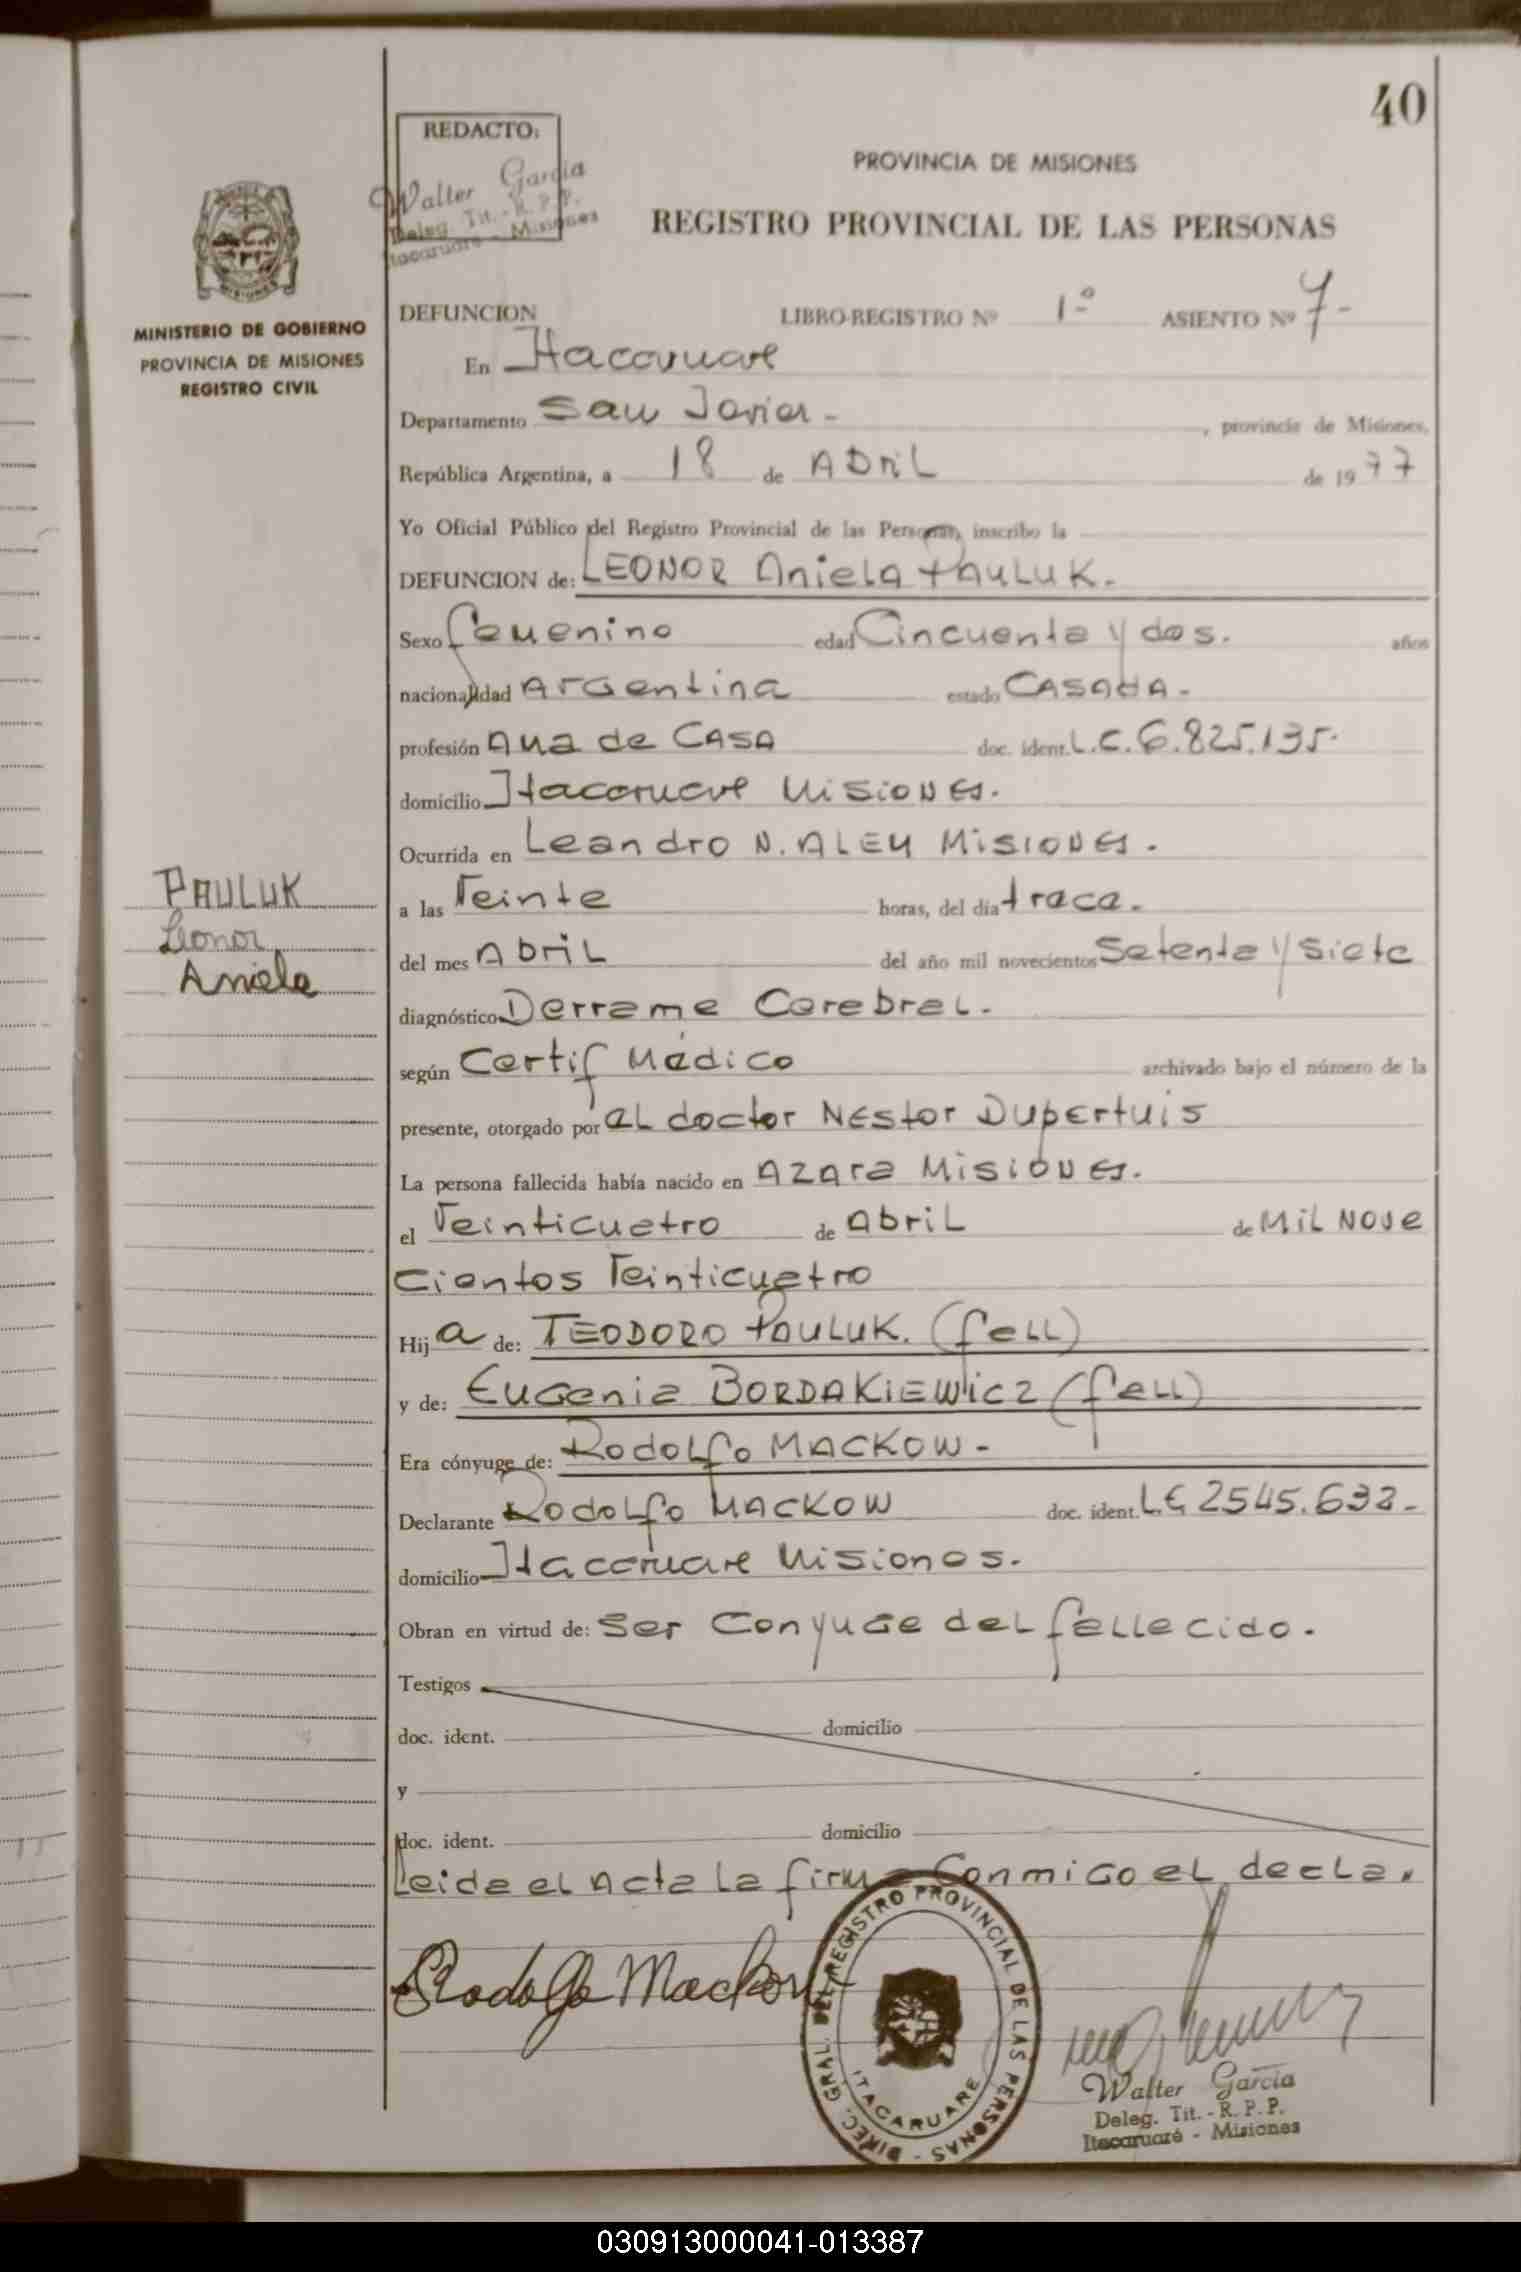 40
REDACTO:
Walter García
Deleg. Tit. - R. P. P.
Itacaruaré - Misiones
PROVINCIA DE MISIONES
REGISTRO PROVINCIAL DE LAS PERSONAS
MINISTERIO DE GOBIERNO
PROVINCIA DE MISIONES
REGISTRO CIVIL
DEFUNCION LIBRO-REGISTRO Nº 1º ASIENTO Nº 7-
En Itacaruare
Departamento San Javier - , provincia de Misiones,
República Argentina, a 18 de Abril de 1977
Yo Oficial Público del Registro Provincial de las Personas, inscribo la
DEFUNCION de: LEONOR Aniela PAULUK.
Sexo femenino edad Cincuenta y dos. años
nacionalidad Argentina estado CASADA -
profesión Ama de CASA doc. ident. L.C. 6.825.135.
domicilio Itacaruare MisioNEs.
Ocurrida en Leandro N. ALEM MisioNEs.
PAULUK
Leonor
Aniela
a las Veinte horas, del día trece.
del mes Abril del año mil novecientos Setenta y Siete
diagnóstico Derrame Cerebral.
según Certif Médico archivado bajo el número de la
presente, otorgado por el doctor NEstor Dupertuis
La persona fallecida había nacido en AZARA MisioNEs.
el Veinticuatro de Abril de Mil NOVE
cientos Veinticuatro
Hija de: TEODORO PAULUK. (fell)
y de: Eugenia BORDAKIEWicz (fell)
Era cónyuge de: Rodolfo MACKOW -
Declarante Rodolfo MACKOW doc. ident. L.E 2545.632-
domicilio Itacaruare Misiones.
Obran en virtud de: Ser Conyuge del fallecido.
Testigos
doc. ident. domicilio
y
doc. ident. domicilio
Leida el Acta la firma Conmigo el decla.
Rodolfo Mackow
DIREC. GRAL. DEL REGISTRO PROVINCIAL DE LAS PERSONAS -
ITACARUARE
Walter García
Deleg. Tit. - R. P. P.
Itacaruaré - Misiones
030913000041-013387